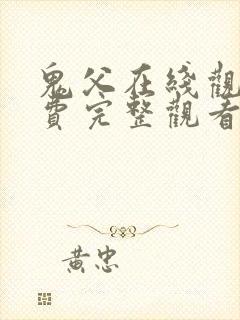 鬼父在綫觀
費完整觀看
黃忠